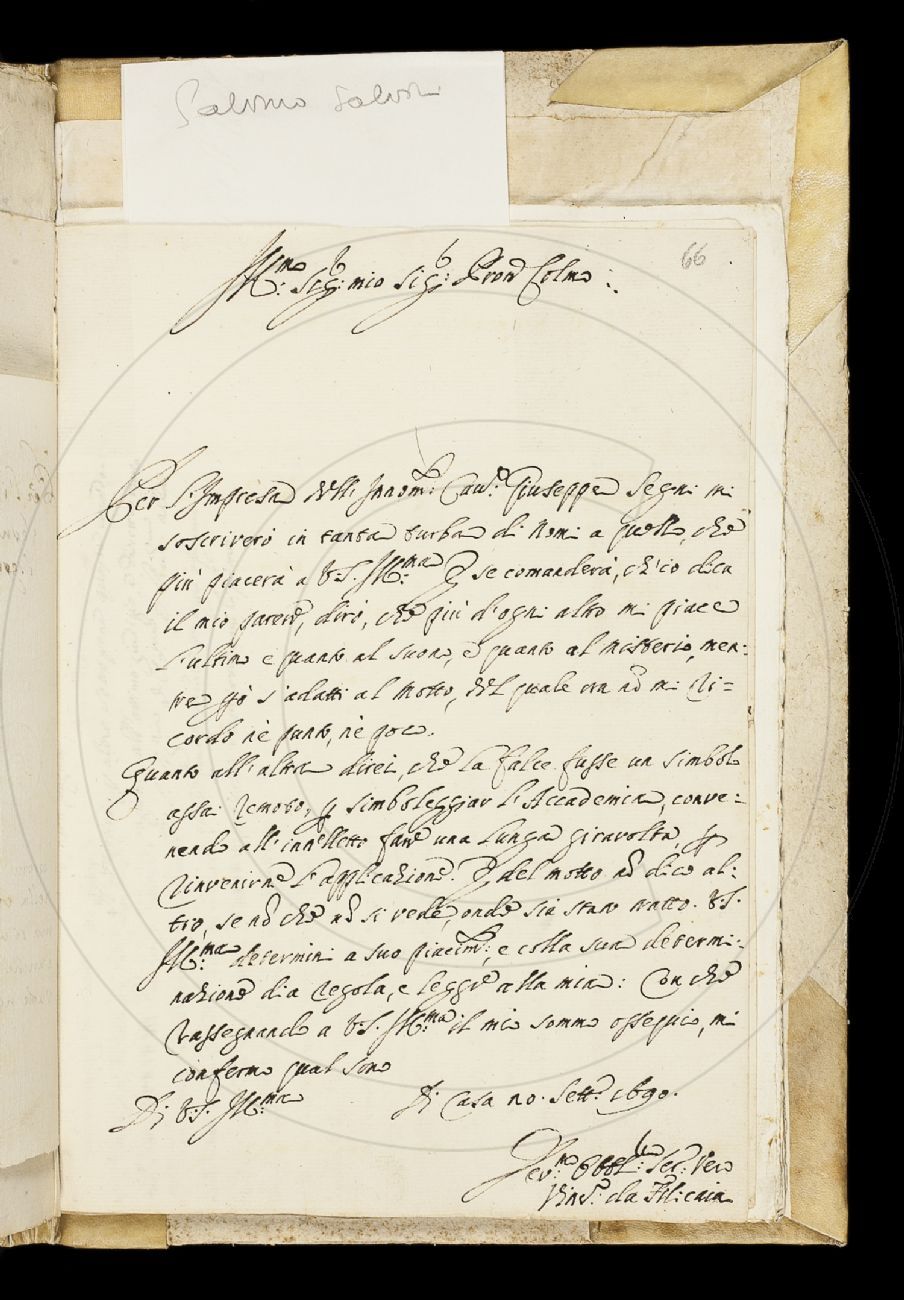 Salvino Salvini
66
Ill.mo Sig.r mio Sig.r Pron Colmo:
Per l'Impresa dell'Innom.to Cav.re Giuseppe Segni mi
soscriverò in tanta turba di Nomi a quello, che
più piacerà a V.S. Ill.ma E se comanderà, ch'io dica
il mio parere, dirò, che più d'ogni altro mi piace
l'ultimo e quanto al suono, e quanto al misterio, men:
tre però s'adatti al Motto, del quale ora nõ mi ri=
cordo nè punto, nè poco.
Quanto all'altra direi, che la falce fusse un simbolo
assai remoto, p simboleggiar l'Accademia, conve:
nendo all'intelletto fare una lunga giravolta, p
rinvenirne l'applicazione. E del motto nõ dico al:
tro, se nõ che nõ si vede, onde sia stato tratto. V.S.
Ill.ma determini a suo piacim.to, e colla sua determi:
nazione dia regola, e legge alla mia: Con che
rassegnando a V.S. Ill.ma il mio sommo ossequio, mi
confermo qual sono
Di V.S. Ill.ma
Di Casa 20. Sett.e 1690.
Dev.mo Obbl.mo Ser.e Vero
Vinc.o da Filicaia